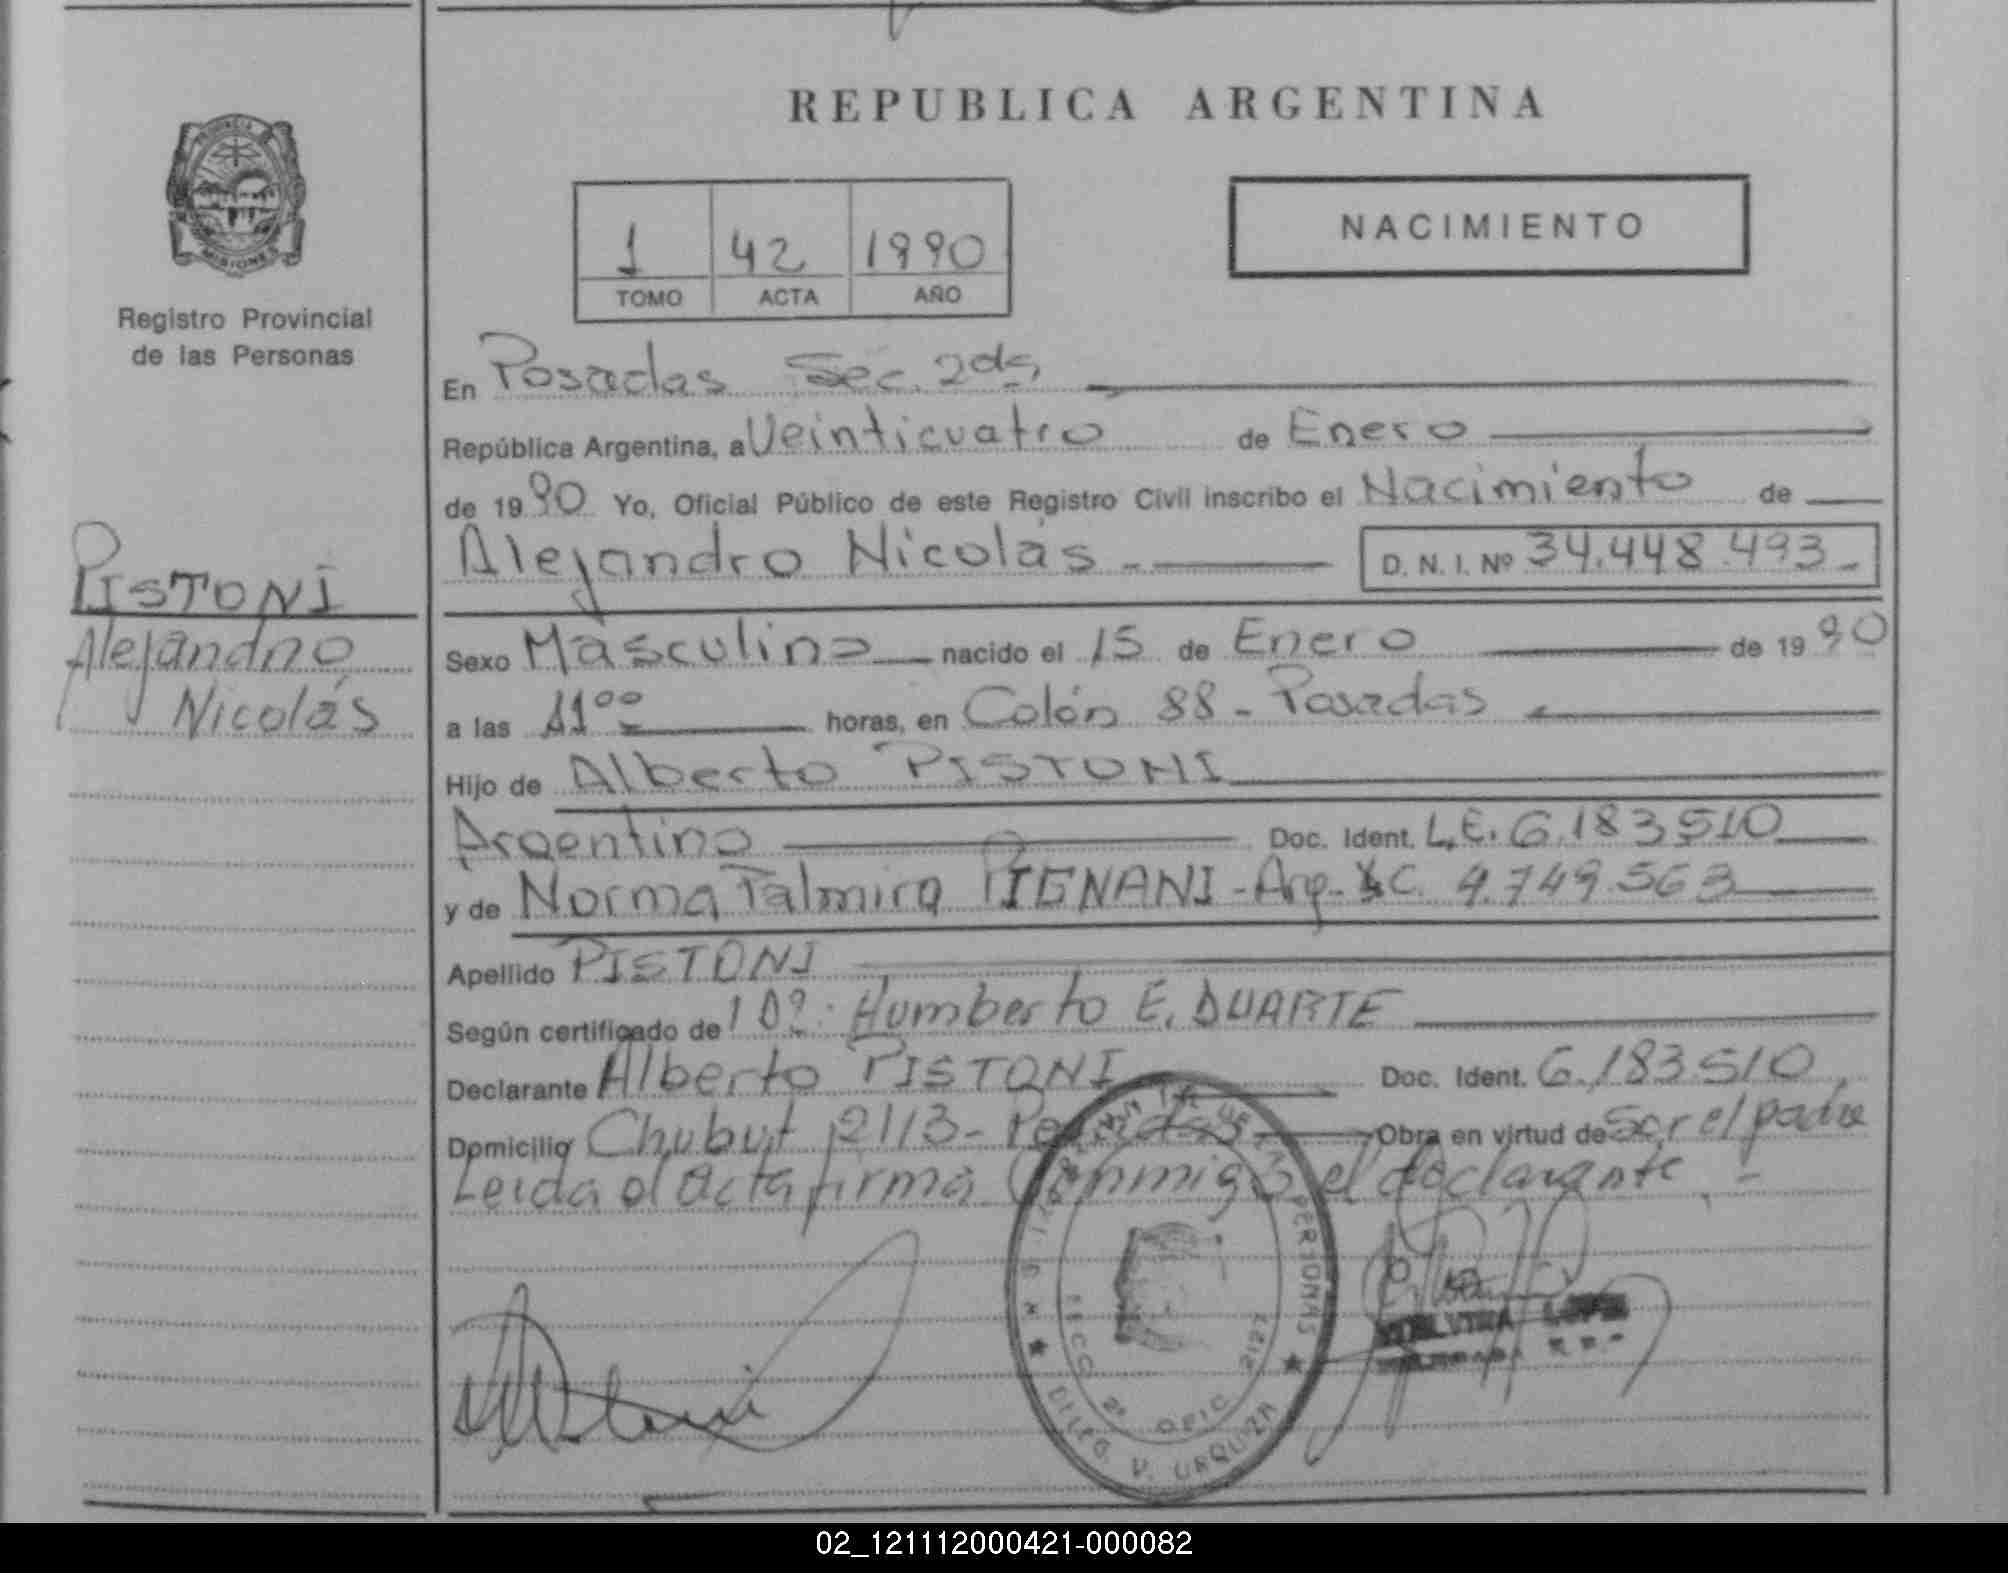 REPUBLICA ARGENTINA
PROVINCIA
MISIONES
Registro Provincial
de las Personas
1 42 1990
TOMO ACTA AÑO
NACIMIENTO
En Posadas Sec. 2da
República Argentina, a Veinticuatro de Enero
de 1990 Yo, Oficial Público de este Registro Civil inscribo el Nacimiento de
Alejandro Nicolás D. N. I. Nº 34.448.493
PISTONI
Alejandro
Nicolás
Sexo Masculino nacido el 15 de Enero de 1990
a las 11⁰⁰ horas, en Colón 88 - Posadas
Hijo de Alberto PISTONI
Argentino Doc. Ident. L.E. 6.183510
y de Norma Palmira PIGNANI - Arg. C. 4.749.563
Apellido PISTONI
Según certificado de Humberto E. DUARTE
Declarante Alberto PISTONI Doc. Ident. 6.183.510
Domicilio Chubut 2113 - Posadas Obra en virtud de Ser el padre
Leida el acta firma Conmigo el declarante. -
PERSONAS
SECC 2ª OFIC 2127
DELEG. V. URQUIZA
02_121112000421-000082